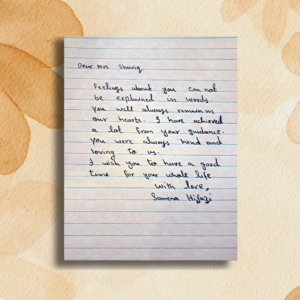 Dear Mrs Shariq,
Feelings about you can not
be explained in words
you will always remain in
our hearts. I have achieved
a lot from your guidance.
You were always kind and
loving to us.
I wish you to have a good
time for your whole life
with love,